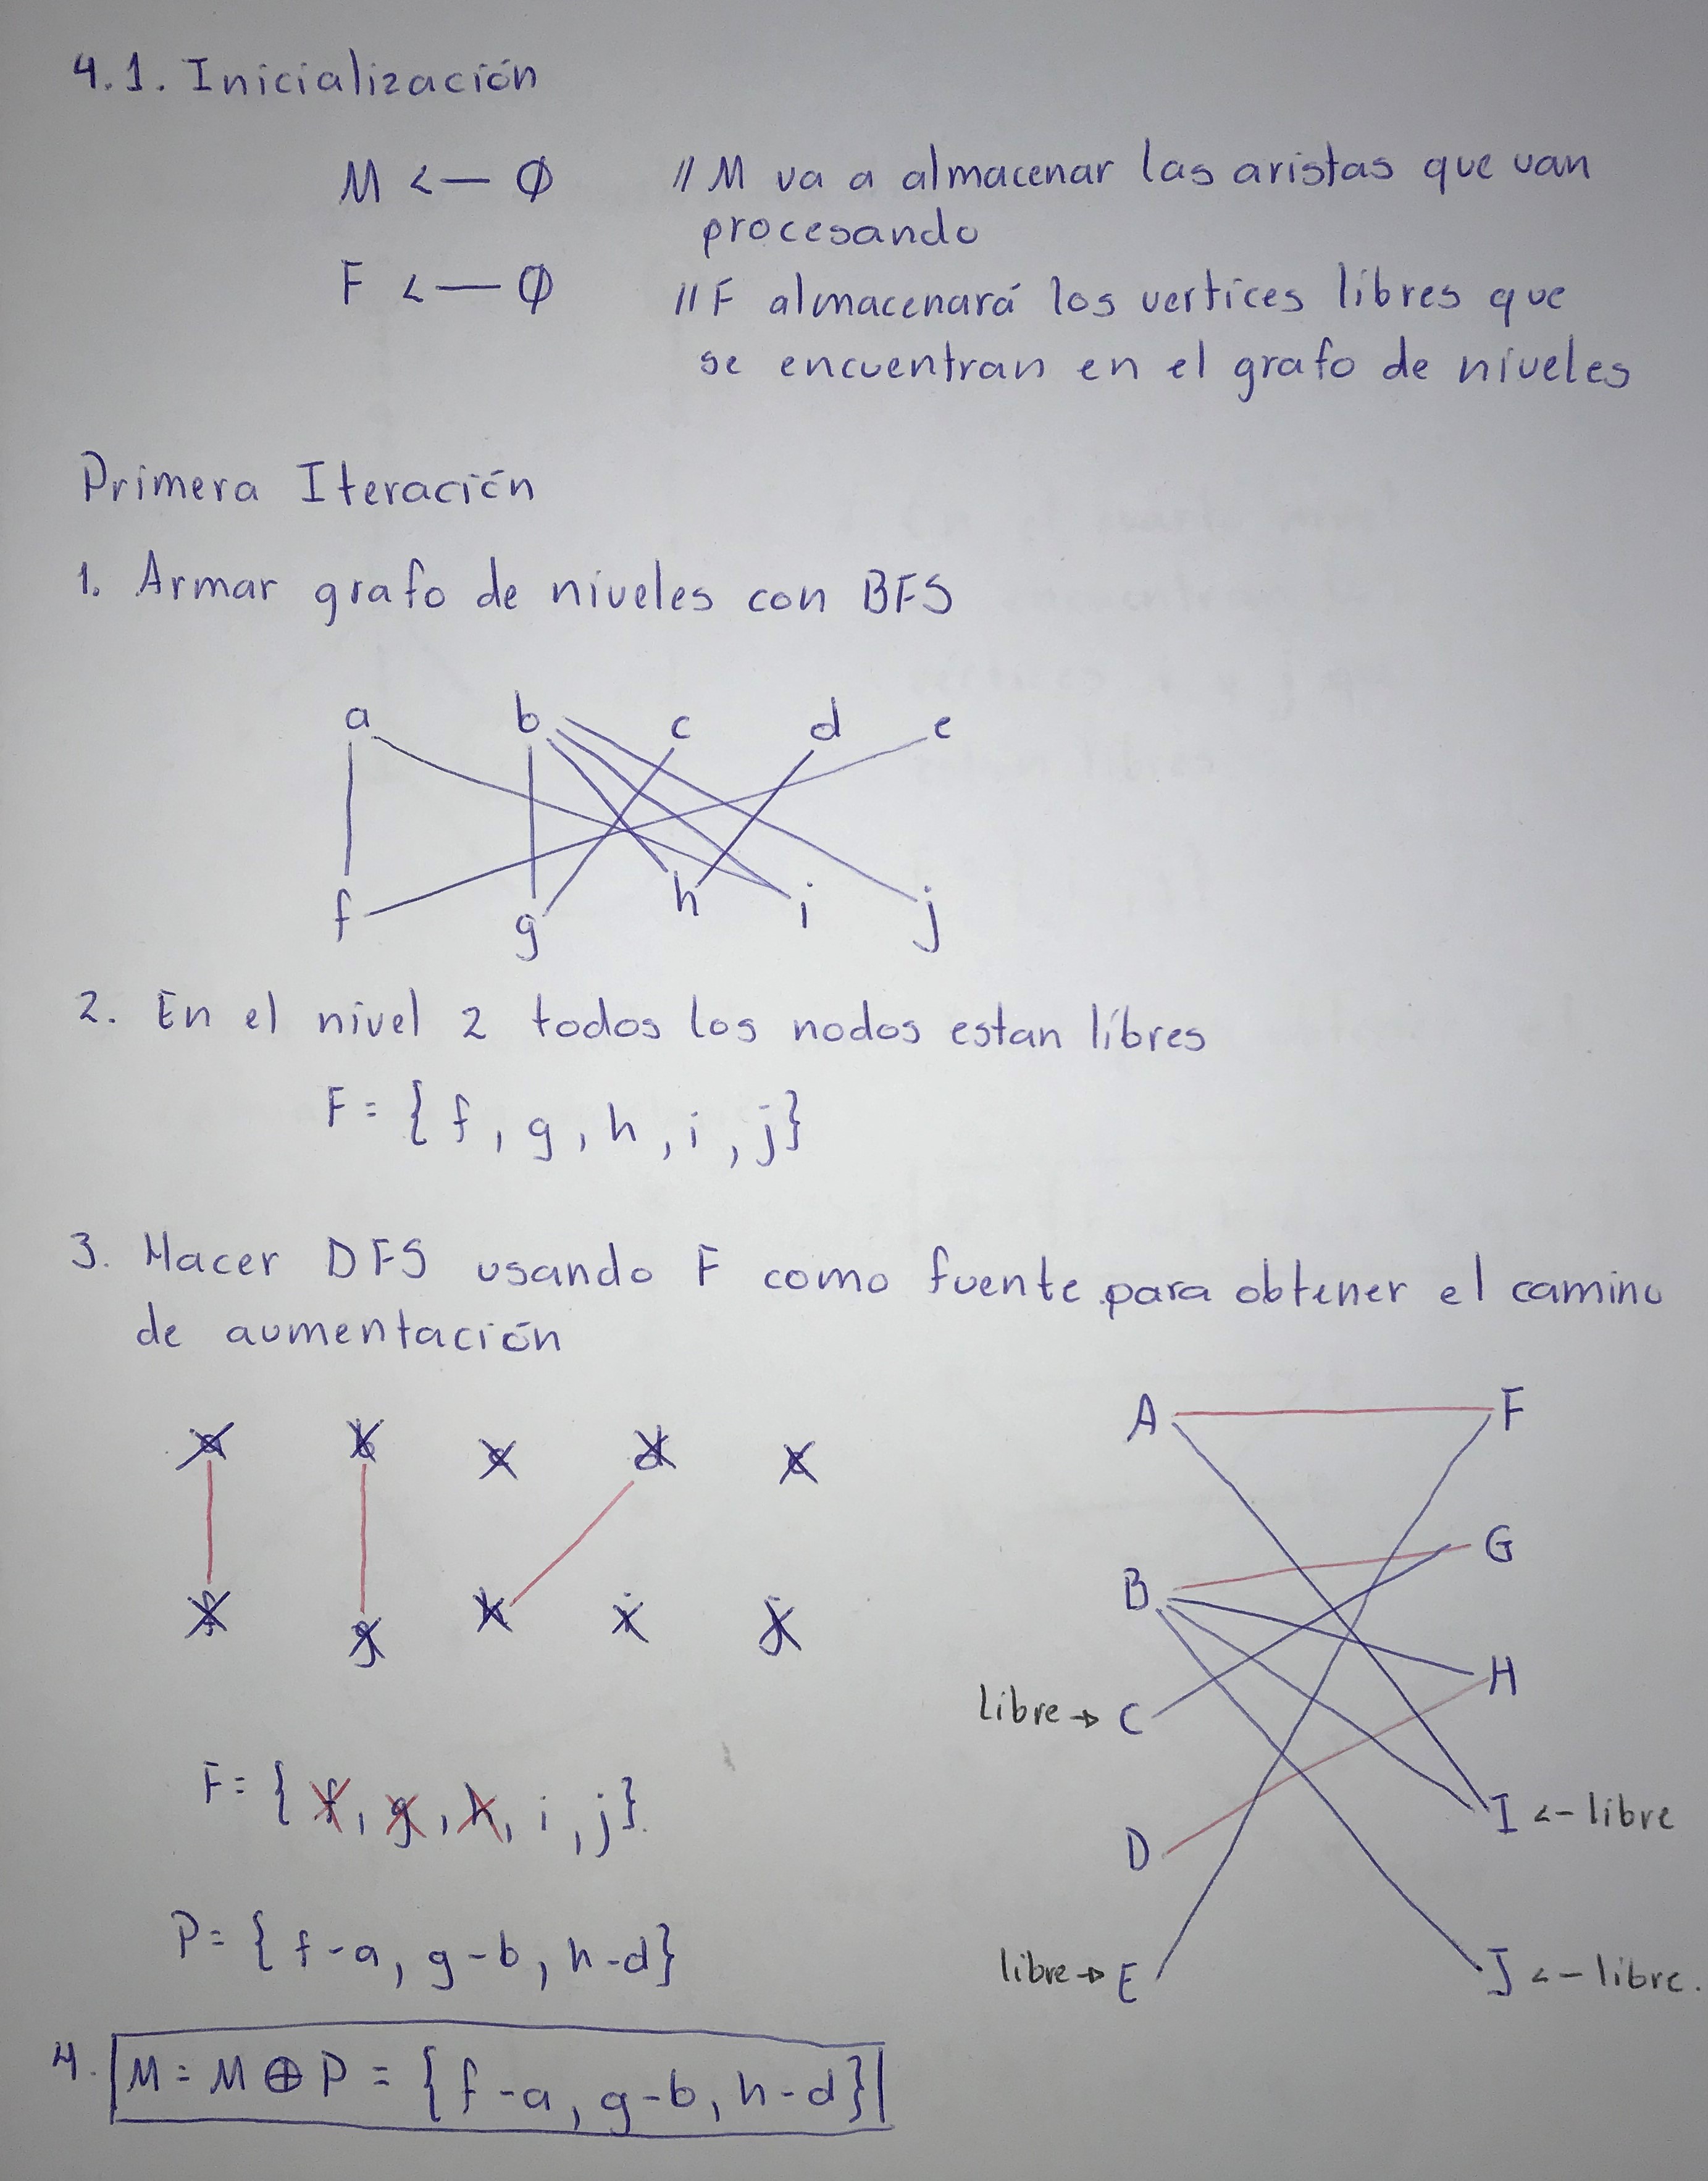 4.1. Inicialización
M <— ∅ // M va a almacenar las aristas que van
procesando
F <— ∅ // F almacenará los vertices libres que
se encuentran en el grafo de niveles
Primera Iteración
1. Armar grafo de niveles con BFS
a b c d e
f g h i j
2. En el nivel 2 todos los nodos estan libres
F = { f, g, h, i, j}
3. Hacer DFS usando F como fuente para obtener el camino
de aumentación
a b c d e
f g h i j
F = { f, g, h, i, j}.
P = { f-a, g-b, h-d}
A F
G
B
H
libre → C
I <- libre
D
libre → E
J <- libre.
4. M = M ⊕ P = { f-a, g-b, h-d}